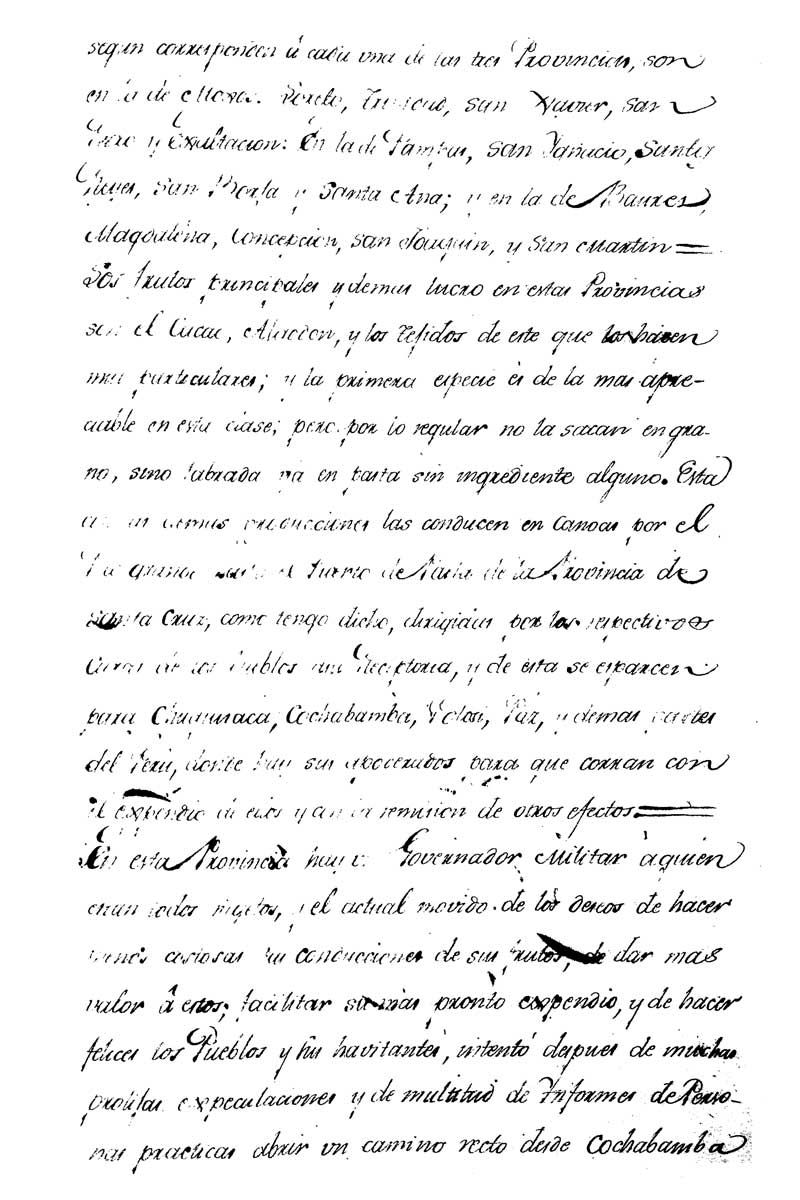 segun corresponden á cada una de las tres Provincias, son
en la de Moxos. Loreto, Trinidad, san Xavier, san
Pedro y Exaltacion: En la de Pampas, san Ygnacio, Santos
Reyes, san Borja y Santa Ana; y en la de Baures,
Magdalena, Concepcion, san Joaquin, y San Martin=
Sos frutos principales y demas lucro en estas Provincias
son el Cacao, Algodon, y los Tejidos de este que los hacen
mui particulares; y la primera especie és de la mas ápre-
ciable en esta clase; pero por lo regular no la sacan en gra-
no, sino labrada ya en pasta sin ingrediente alguno. Esta
demas producciones las conducen en canoas por el
Rio grande hasta el Puerto de de la Provincia de
Santa Cruz, como tengo dicho, dirigidas por los respectivos
Curas de los Pueblos Receptoria, y de esta se esparcen
para Chuquisaca, Cochabamba, Potosi, Paz, y demas partes
del Perú, donde hay sus apoderados para que corran con
el expendio de ellos y con la remision de otros efectos.=
En esta Provincia hay un Governador Militar á quien
estan todos sugetos, y el actual movido de los deseos de hacer
menos costosas las conducciones de sus frutos, de dar mas
valor á estos; facilitar su mas pronto expendio, y de hacer
felices los Pueblos y sus havitantes, intentó despues de muchas
prolijas expeculaciones y de multitud de Informes de Perso-
nas practicas abrir vn camino recto desde Cochabamba